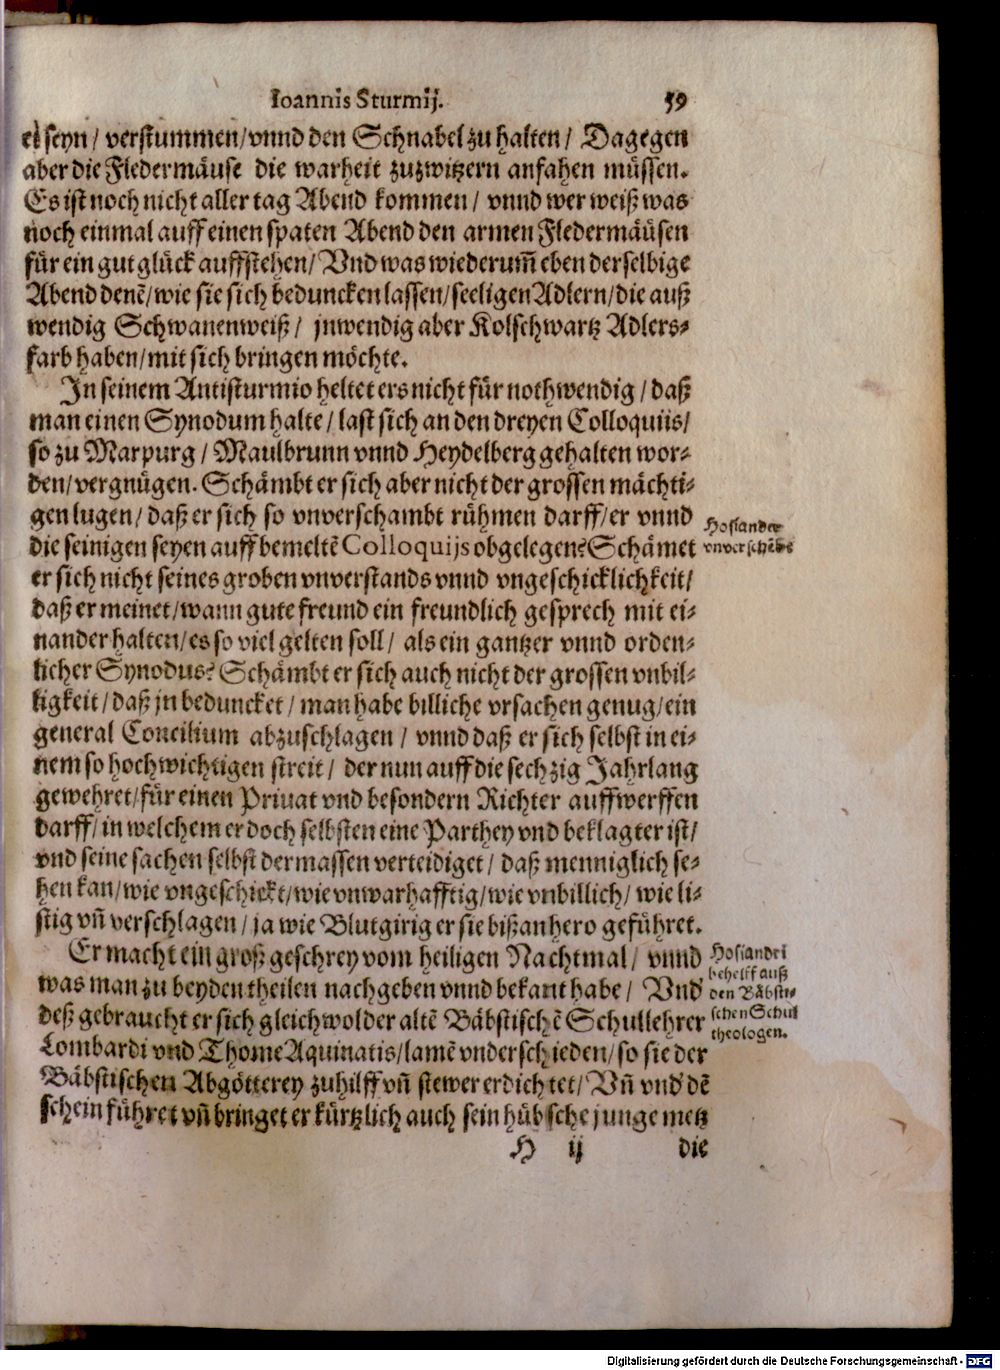 Ioannis Sturmij. 59
seyn / verstummen / vnnd den Schnabel zu halten / Dagegen
aber die Fledermäuse die warheit zuzwitzern anfahen müssen.
Es ist noch nicht aller tag Abend kommen / vnnd wer weiß was
noch einmal auff einen spaten Abend den armen Fledermäüsen
für ein gut glück auffstehen / Vnd was wiederum̃ eben derselbige
Abend denẽ / wie sie sich beduncken lassen / seeligen Adlern / die auß
wendig Schwanenweiß / jnwendig aber Kolschwartz Adlers-
farb haben / mit sich bringen möchte.
In seinem Antisturmio heltet ers nicht für nothwendig / daß
man einen Synodum halte / last sich an den dreyen Colloquiis /
so zu Marpurg / Maulbrunn vnnd Heydelberg gehalten wor-
den / vergnügen. Schämbt er sich aber nicht der grossen mächti-
gen lugen / daß er sich so vnverschambt rühmen darff / er vnnd
die seinigen seyen auff bemeltẽ Colloquijs obgelegen? Schämet
er sich nicht seines groben vnverstands vnnd vngeschicklichkeit /
daß er meinet / wann gute freund ein freundlich gesprech mit ei-
nander halten / es so viel gelten soll / als ein gantzer vnnd orden-
licher Synodus? Schämbt er sich auch nicht der grossen vnbil-
ligkeit / daß jn beduncket / man habe billiche vrsachen genug / ein
general Concilium abzuschlagen / vnnd daß er sich selbst in ei-
nem so hochwichtigen streit / der nun auff die sechzig Jahrlang
gewehret / für einen Priuat vnd besondern Richter auffwerffen
darff / in welchem er doch selbsten eine Parthey vnd beklagter ist /
vnd seine sachen selbst dermassen verteidiget / daß menniglich se-
hen kan / wie vngeschickt / wie vnwarhafftig / wie vnbillich / wie li-
stig vñ verschlagen / ja wie Blutgirig er sie bißanhero geführet.
Er macht ein groß geschrey vom heiligen Nachtmal / vnnd
was man zu beyden theilen nachgeben vnnd bekant habe / Vnd
deß gebraucht er sich gleichwol der altẽ Bäbstischẽ Schullehrer
Lombardi vnd Thome Aquinatis / lamẽ vnderschieden / so sie der
Bäbstischen Abgötterey zuhilff vñ stewer erdichtet / Vñ vnd' dẽ
schein führet vñ bringet er kürtzlich auch sein hübsche junge metz
H ij die
Hosiander
vnverschẽbt
Hosiandri
behelff auß
den Bäbsti-
schen Schul
theologen.
Digitalisierung gefördert durch die Deutsche Forschungsgemeinschaft - DFG